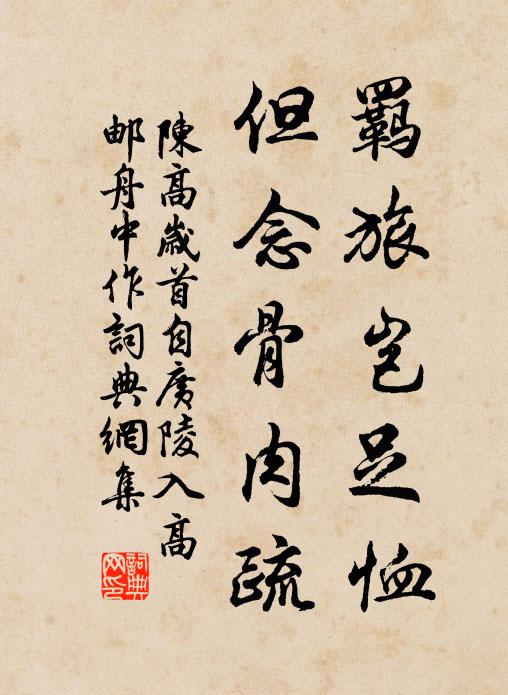 羈旅豈足恤
但念骨肉疏
陳高歲首自廣陵入高
邮舟中作詞典網集
詞典網印